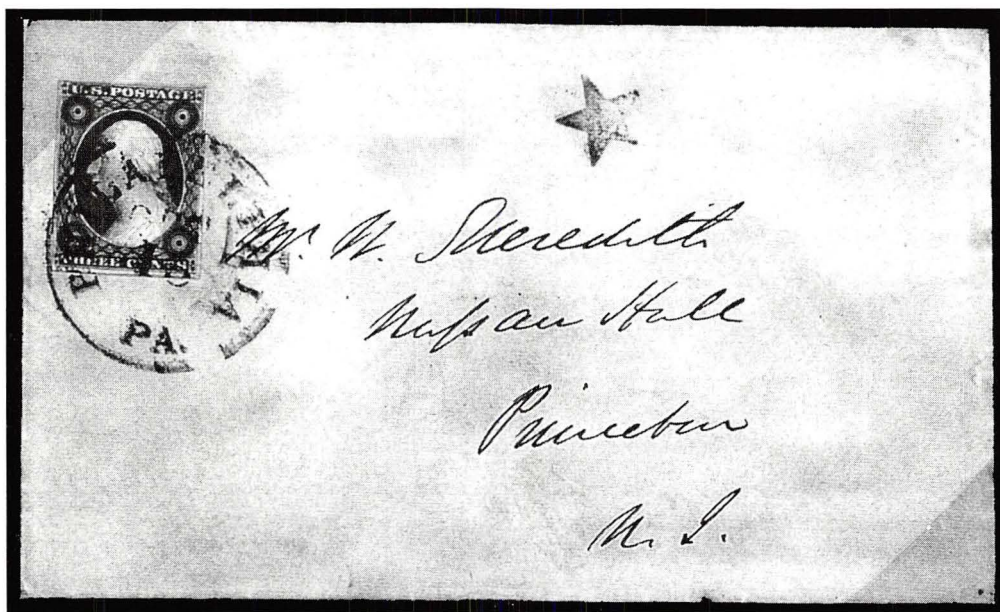 U.S. POSTAGE
THREE CENTS
PA.
Mr. N. Meredith
Nassau Hall
Princeton
N. J.